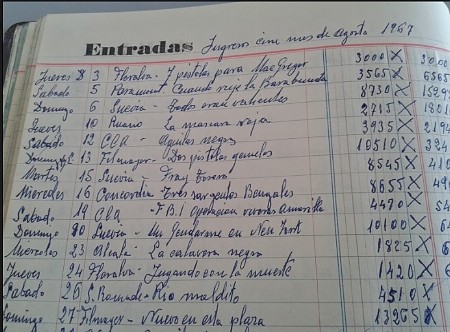 Entradas Ingresos cine mes de agosto 1967
Jueves 3 Floralva - 7 pistolas para Mac Gregor 3000 X 3000
Sabado 5 Paramount Cuando ruje la Barabunda 3565 X 6565
Domingo 6 Suevia - Todos eran valientes 8730 X
Jueves 10 Ruano La mascara roja 2715 X
Sabado 12 CEA - Aguilas negras 3935 X
Domingo 13 Filmayer - Dos pistolas gemelas 10510 X
Martes 15 Suevia - Fray Torero 8545 X
Miercoles 16 Concordia Tres sargentos Bengalies 8655 X
Sabado 19 CEA - F.B.I. Operacion Amarilla 4470 X
Domingo 20 Suevia - Un Gendarme en New York 10100 X
Miercoles 23 Alcala - La calavera negra 1825 X
Jueves 24 Floralva - Jugando con la muerte 1420 X
Sabado 26 S. - Rio maldito 4510 X
Domingo 27 Filmayer - Nuevo en esta plaza 13265 X